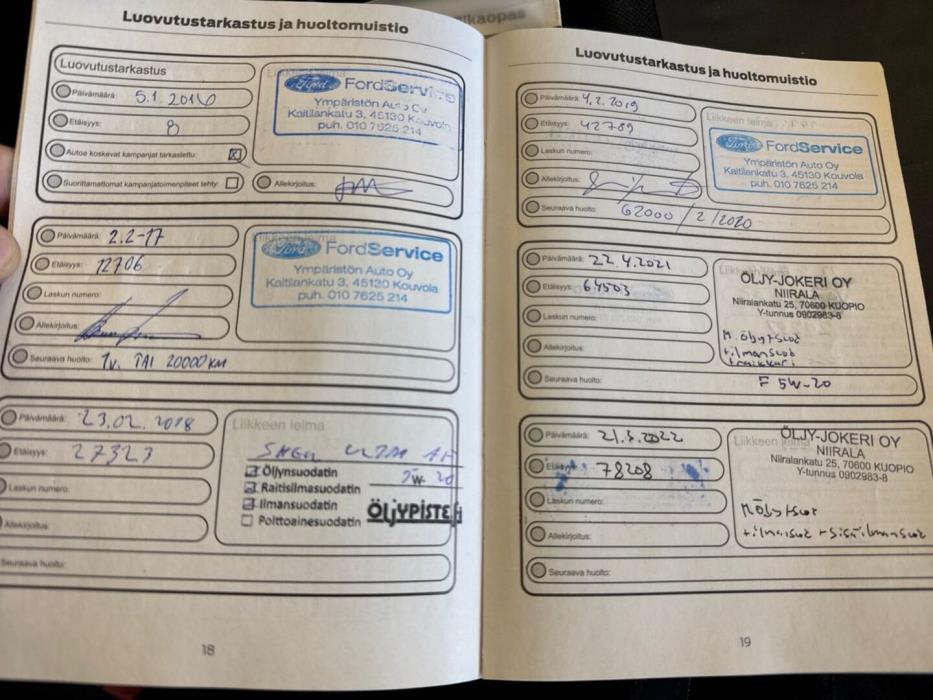 lkaopas
Luovutustarkastus ja huoltomuistio
Luovutustarkastus
Päivämäärä: 5.1.2016
Etäisyys: 8
Autoa koskevat kampanjat tarkastettu:
Suorittamattomat kampanjatoimenpiteet tehty:
Allekirjoitus:
Liikkeen leima
Ford FordService
Ympäristön Auto Oy
Kaitilankatu 3, 45130 Kouvola
puh. 010 7625 214
Päivämäärä: 2.2-17
Etäisyys: 12706
Laskun numero:
Allekirjoitus:
Seuraava huolto: 1v. TAI 20000 KM
Liikkeen leima
Ford FordService
Ympäristön Auto Oy
Kaitilankatu 3, 45130 Kouvola
puh. 010 7625 214
Päivämäärä: 23.02.2018
Etäisyys: 27323
Laskun numero:
Allekirjoitus:
Seuraava huolto:
Liikkeen leima
Öljynsuodatin 5W-20
Raitisilmasuodatin
Ilmansuodatin
Polttoainesuodatin
ÖLJYPISTE
18
Luovutustarkastus ja huoltomuistio
Päivämäärä: 4.2.2019
Etäisyys: 42789
Laskun numero:
Allekirjoitus:
Seuraava huolto: 62000 / 2 / 2020
Liikkeen leima
Ford FordService
Ympäristön Auto Oy
Kaitilankatu 3, 45130 Kouvola
puh. 010 7625 214
Päivämäärä: 22.4.2021
Etäisyys: 64503
Laskun numero:
Allekirjoitus:
Seuraava huolto: F 5W-20
Liikkeen
ÖLJY-JOKERI OY
NIIRALA
Niiralankatu 25, 70600 KUOPIO
Y-tunnus 0902983-8
M.öljy+suod
+ilmansuod
Päivämäärä: 21.3.2022
Etäisyys: 78208
Laskun numero:
Allekirjoitus:
Seuraava huolto:
Liikkeen leima
ÖLJY-JOKERI OY
NIIRALA
Niiralankatu 25, 70600 KUOPIO
Y-tunnus 0902983-8
Möljy+suod
+ilmansuod +sisäilmansuod
19